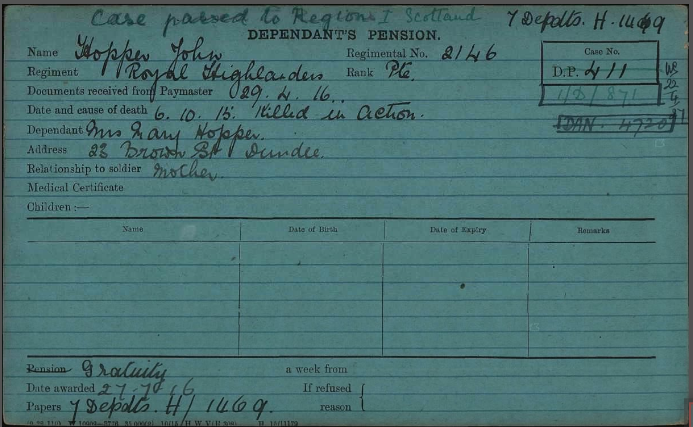 Case passed to Region I Scotland
7 Depdts. H. 1469
DEPENDANT'S PENSION.
Name Hopper John Regimental No. 2146
Case No.
Regiment Royal Highlanders Rank Pte.
D.P. 411
Documents received from Paymaster 29. 4. 16.
11/D/871
Date and cause of death 6. 10. 15. Killed in Action.
Dependant Mrs Mary Hopper.
Address 23 Brown St Dundee.
Relationship to soldier Mother.
Medical Certificate
Children :—
Name Date of Birth Date of Expiry Remarks
Pension Gratuity a week from
Date awarded 27.7.16 If refused
Papers 7 Depdts. H/1469. reason